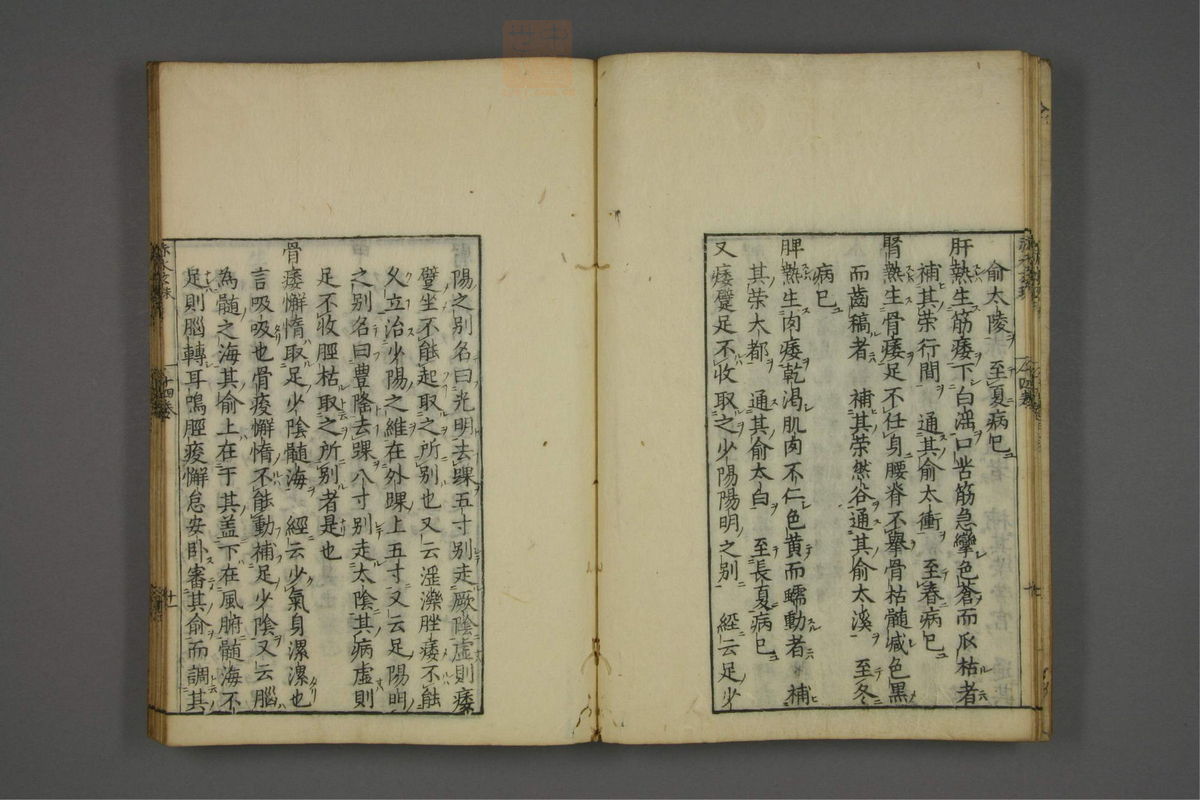 俞太陵 至夏病已
肝熱生筋痿下白淫口苦筋急攣色蒼而爪枯者
補其荣行間 通其俞太衝 至春病已
腎熱生骨痿足不任身腰脊不擧骨枯髓减色黒
而齒稿者 補其荣然谷通其俞太溪 至冬
病已
脾熱生肉痿乾渴肌肉不仁色黄而蠕動者 補
其荣大都 通其俞太白 至長夏病已
又痿躄足不收取之少陽陽明之别 経云足少
陽之别名曰光明去踝五寸别走厥陰虚則痿
躄坐不能起取之所别也又云淫濼脛痿不能
久立治少陽之維在外踝上五寸又云足陽明
之别名曰豊隆去踝八寸别走太陰其病虚則
足不收脛枯取之所别者是也
骨痿懈惰取足少陰髓海 經云少氣身漯漯也
言吸吸也骨痠懈惰不能動補足少陰又云腦
為髓之海其俞上在于其盖下在風腑髓海不
足則腦轉耳鳴脛痠懈怠安卧審其俞而調其